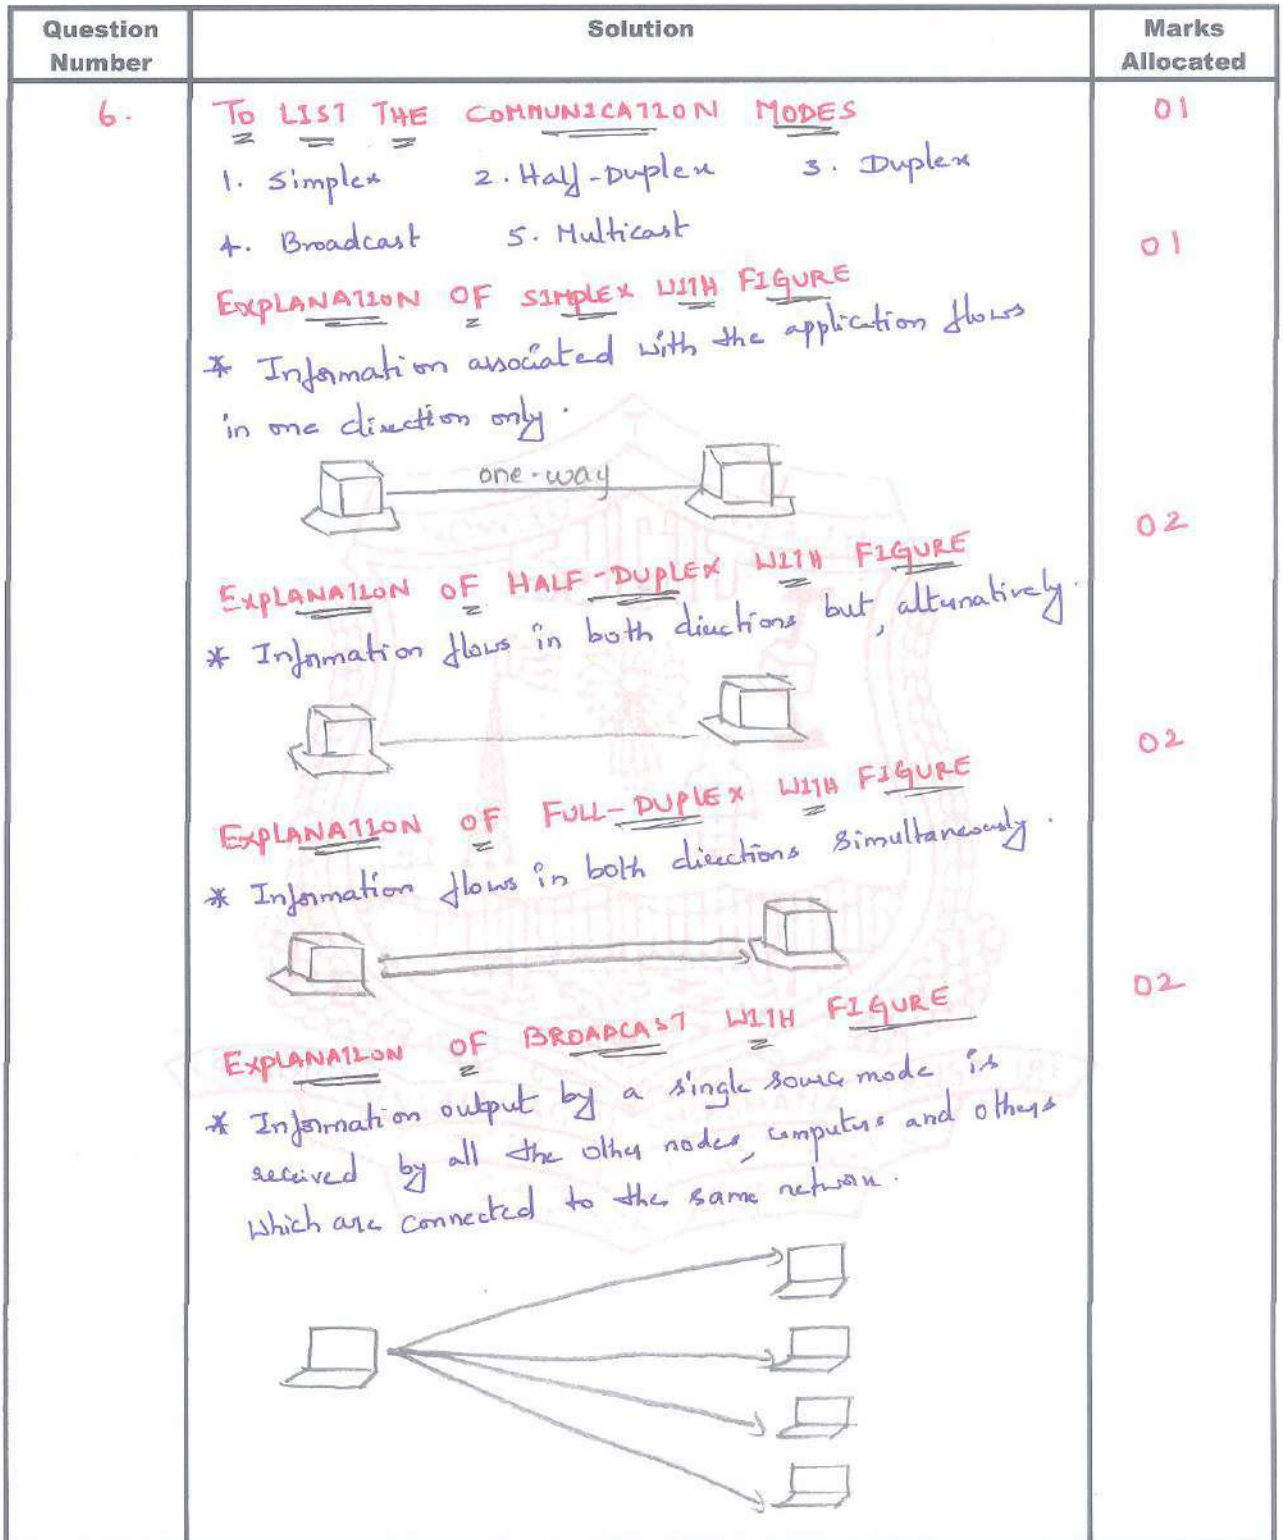 Question Number
Solution
Marks Allocated
6.
TO LIST THE COMMUNICATION MODES
01
1. Simplex 2. Half-Duplex 3. Duplex
4. Broadcast 5. Multicast
01
EXPLANATION OF SIMPLEX WITH FIGURE
* Information associated with the application flows
in one direction only.
one-way
02
EXPLANATION OF HALF-DUPLEX WITH FIGURE
* Information flows in both directions but, alternatively.
02
EXPLANATION OF FULL-DUPLEX WITH FIGURE
* Information flows in both directions simultaneously.
02
EXPLANATION OF BROADCAST WITH FIGURE
* Information output by a single source mode is
received by all the other nodes, computers and others
which are connected to the same network.